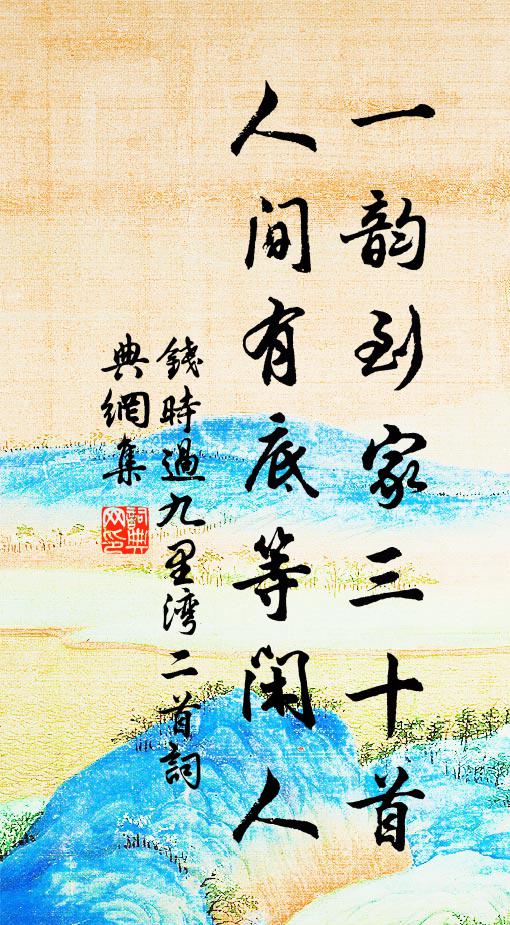 一韵到家三十首
人间有底等闲人
錢時過九里湾二首詞
典網集
詞典网印